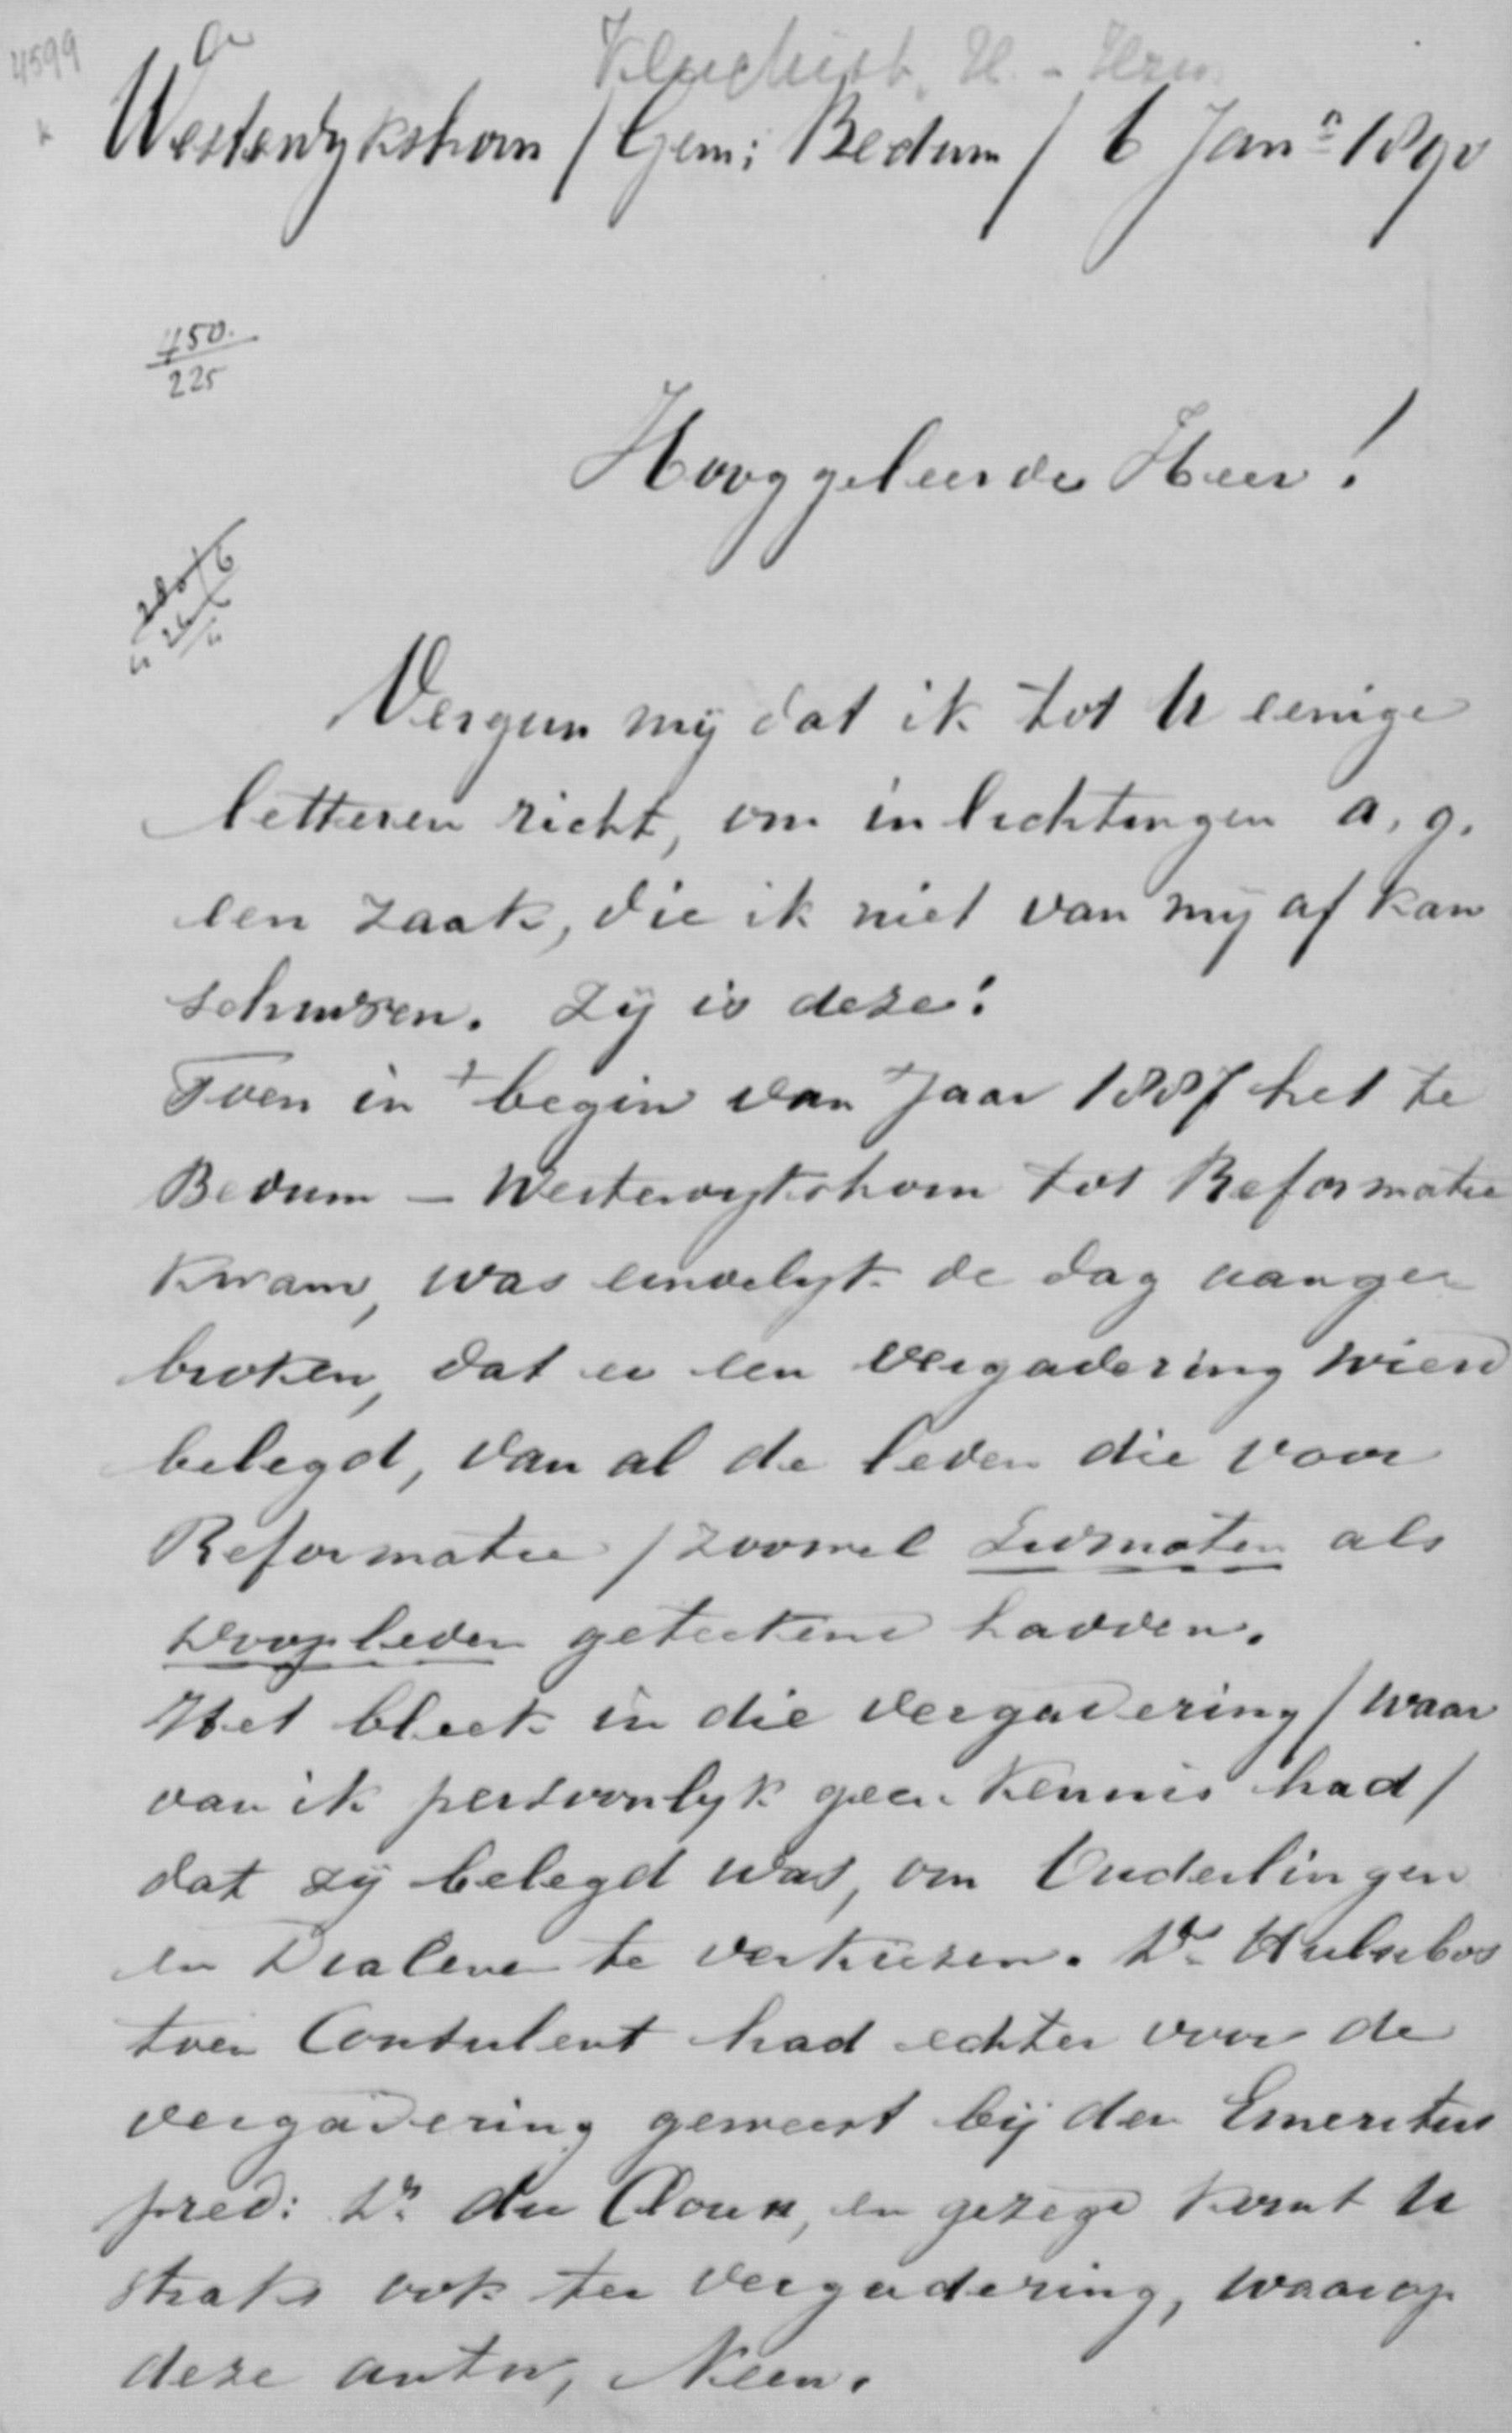 4599
Westerdykshorn / Gem: Bedum / 6 Jan: 1890
450.
225
Hooggeleerde Heer!
Vergun mij dat ik tot U eenige
letteren richt, om inlichtingen a, g.
een zaak, die ik niet van mij af kan
schuiven. Zij is deze:
Toen in 't begin van Jaar 1887 het te
Bedum – Westerdykshorn tot Reformatie
kwam, was eindelyk de dag aange-
broken, dat er een vergadering wierd
belegd, van al de leden die voor
Reformatie / zoowel Lidmaten als
Doopleden geteekend hadden.
Het bleek in die vergadering / waar
van ik persoonlyk geen kennis had /
dat zij belegd was, om Ouderlingen
en Diakenen te verkiezen. Ds. Hulsebos
toen Consulent had echter voor de
vergadering geweest bij den Emeritus
pred: Ds. du Cloux, en gezegd komt U
straks ook ter vergadering, waarop
deze antw, Neen.